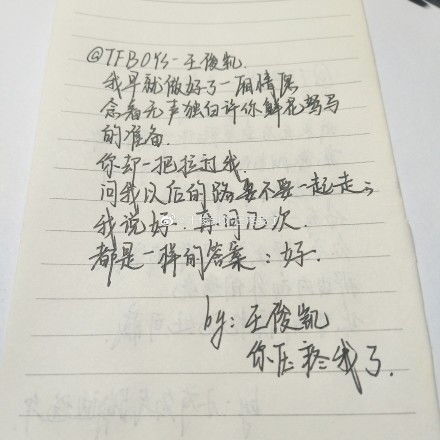 @TFBOYS-王俊凯.
我早就做好了一厢情愿
念着无声独白许你鲜花驽马
的准备.
你却一把拉过我.
问我以后的路要不要一起走
我说好.再问几次.
都是一样的答案：好.
by:王俊凯
你压疼我了.